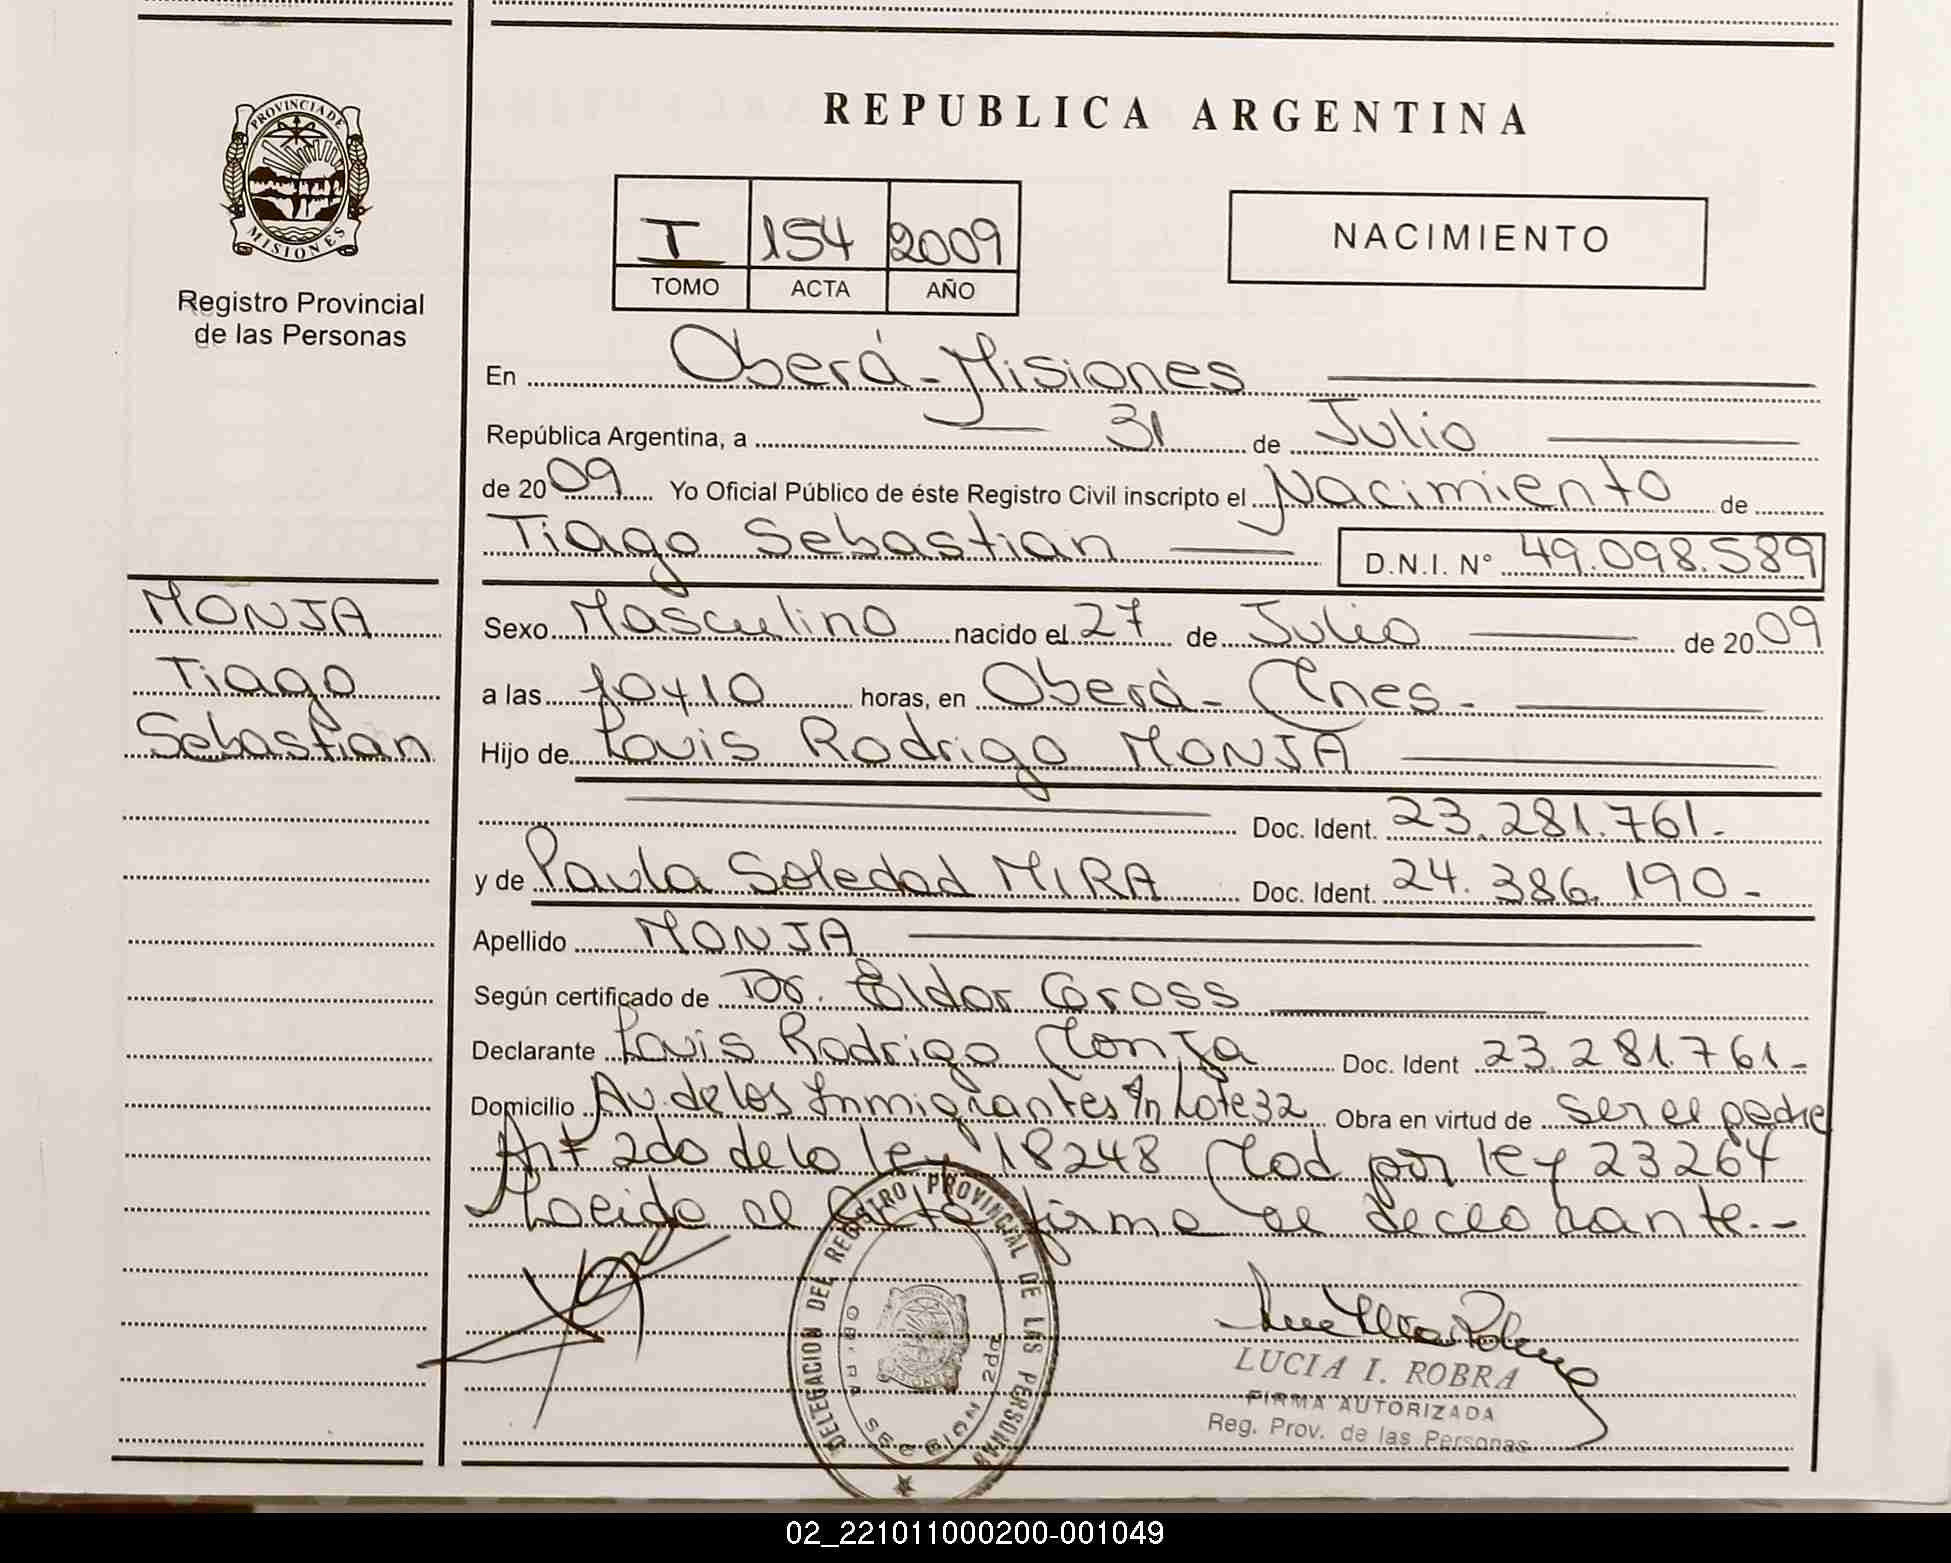 REPUBLICA ARGENTINA
PROVINCIA DE
MISIONES
Registro Provincial
de las Personas
I 154 2009
TOMO ACTA AÑO
NACIMIENTO
En Oberá - Misiones
República Argentina, a 31 de Julio
de 2009 Yo Oficial Público de éste Registro Civil inscripto el Nacimiento de
Tiago Sebastian D.N.I. Nº 49.098.589
MONJA
Tiago
Sebastian
Sexo Masculino nacido el 27 de Julio de 2009
a las 10y10 horas, en Oberá - Mnes -
Hijo de Louis Rodrigo MONJA
Doc. Ident. 23.281.761.-
y de Paula Soledad MIRA Doc. Ident. 24.386.190-
Apellido MONJA
Según certificado de Dr. Eldor Gross
Declarante Louis Rodrigo Monja Doc. Ident 23.281.761-
Domicilio Av. de los Inmigrantes Lote 32 Obra en virtud de ser el padre
Art 2do de la ley 18248 Mod por ley 23264
Leida el Acta firma el declarante.-
DELEGACION DEL REGISTRO PROVINCIAL DE LAS PERSONAS
LUCIA I. ROBRA
FIRMA AUTORIZADA
Reg. Prov. de las Personas
02_221011000200-001049